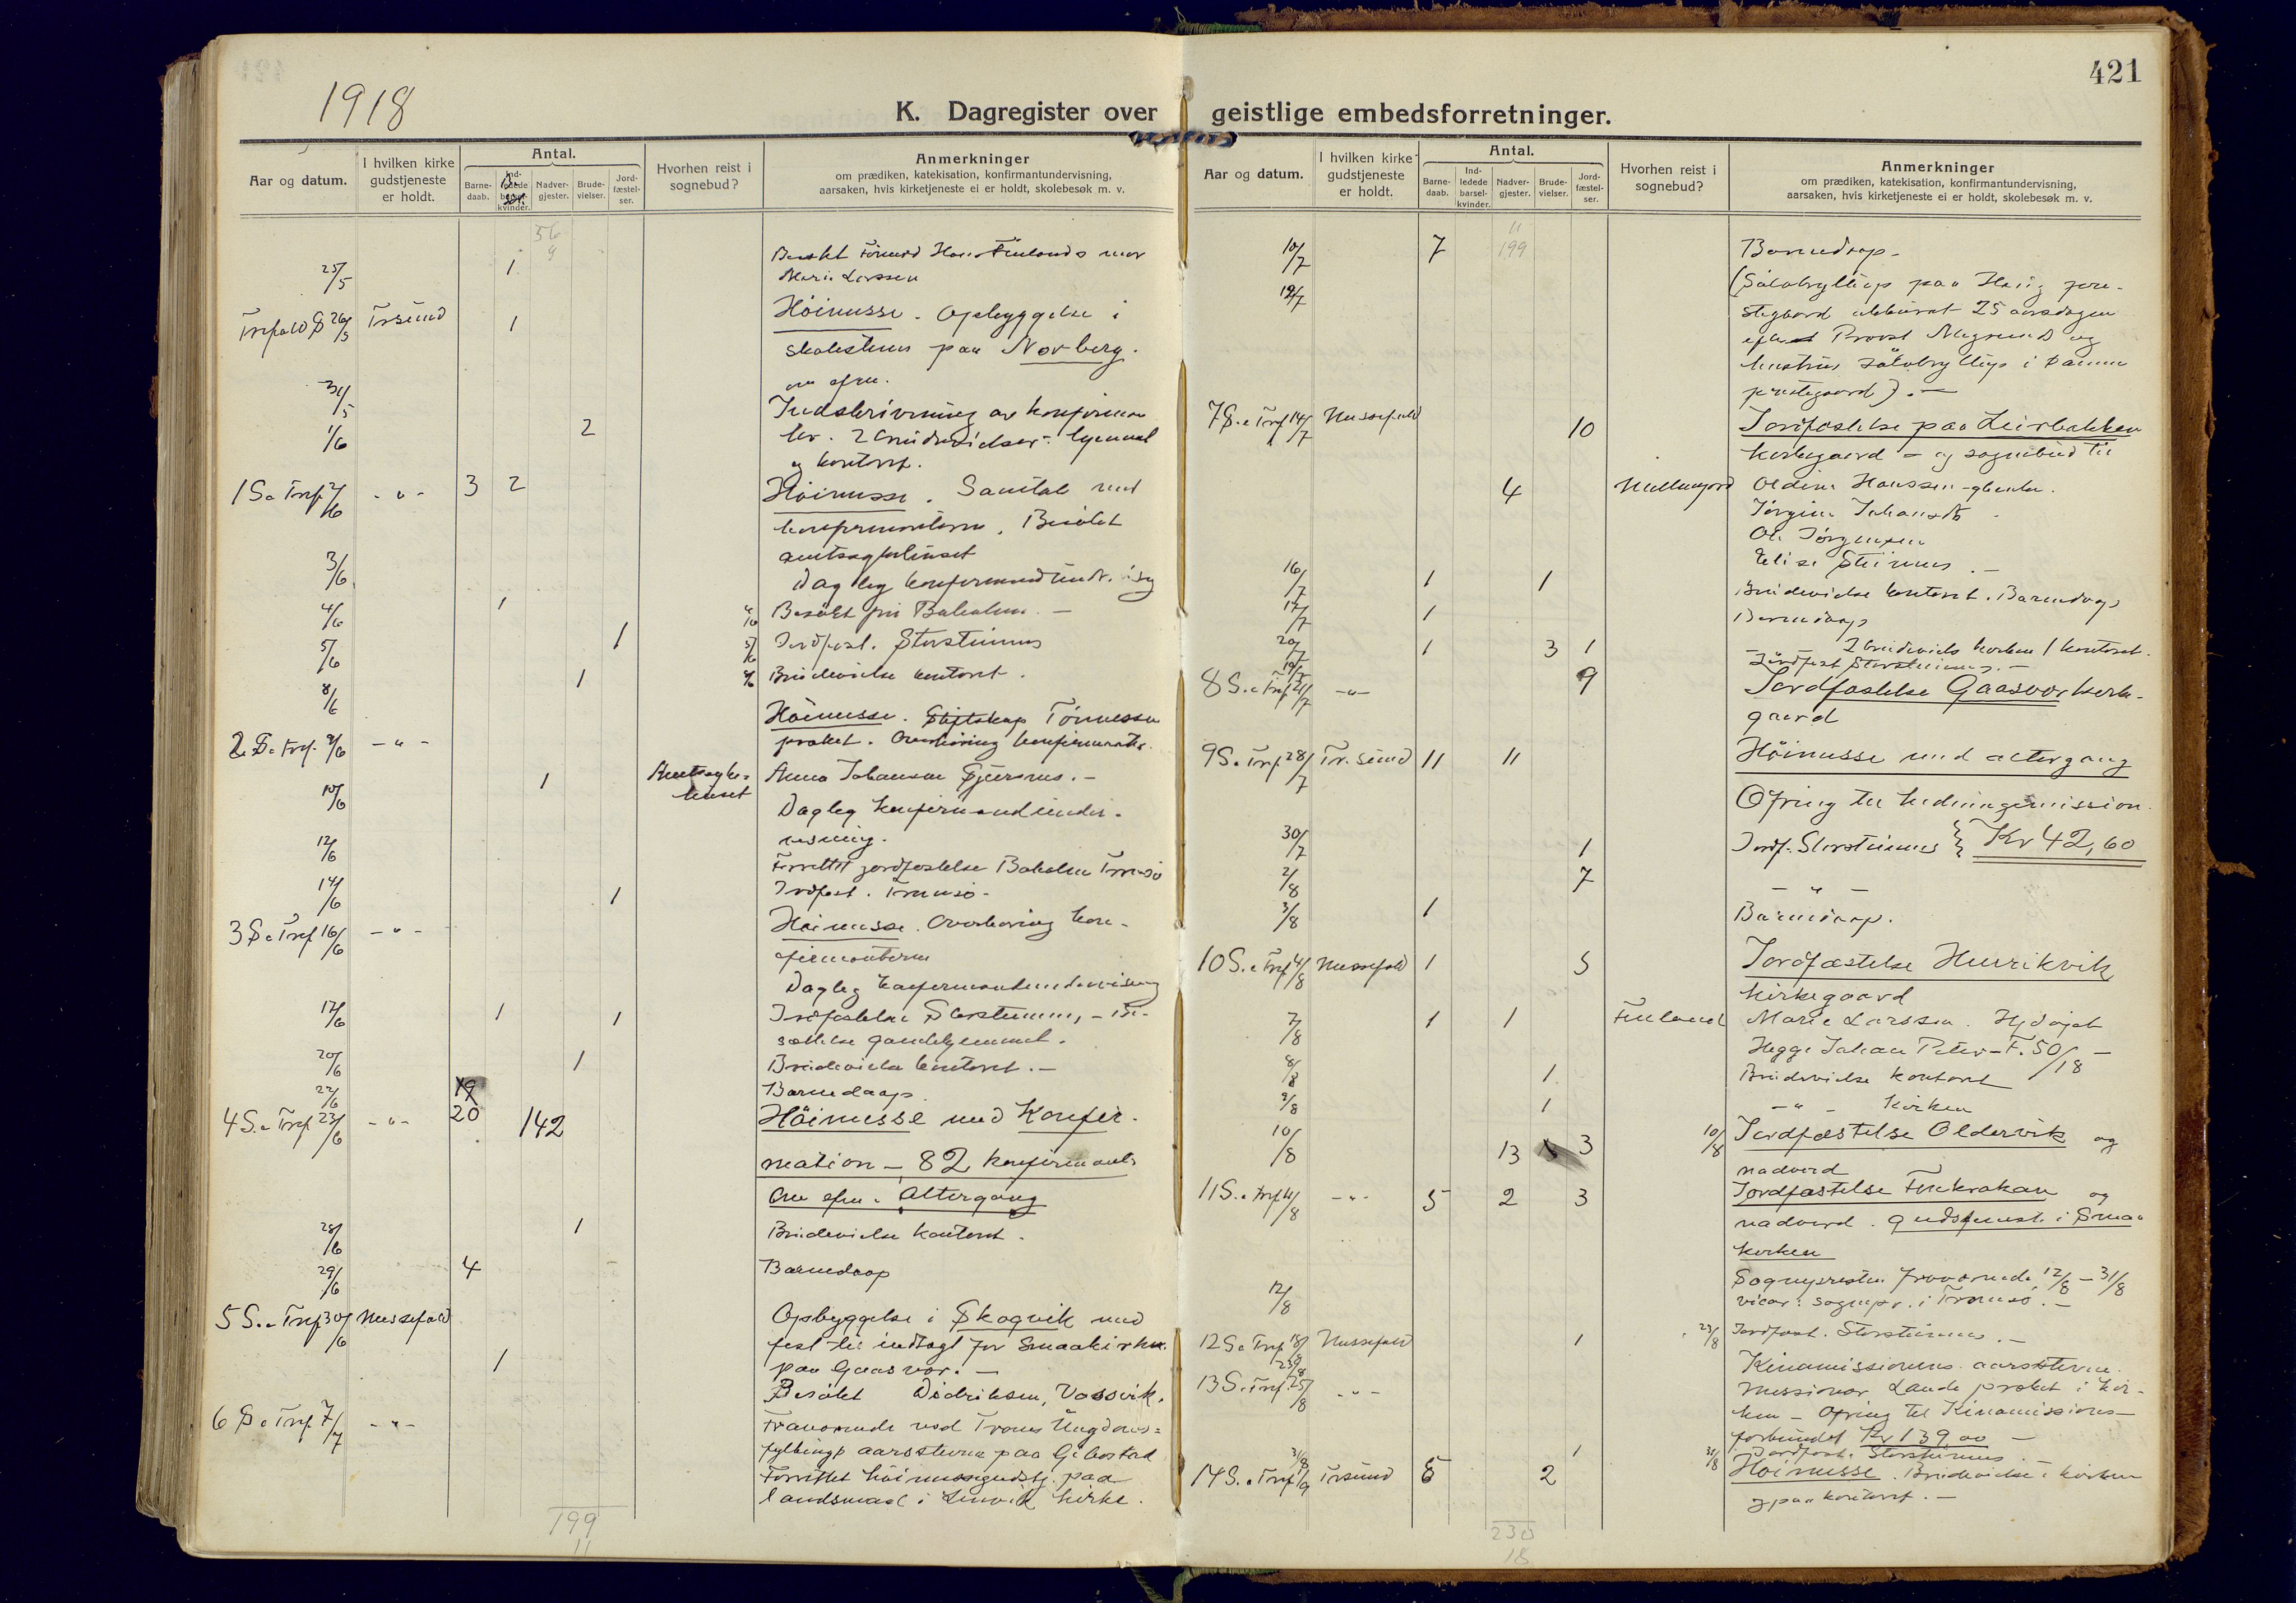 421
1918
K. Dagregister over geistlige embedsforretninger.
Aar og datum.
I hvilken kirke gudstjeneste er holdt.
Antal.
Barne-daab.
Ind-ledede barsel-kvinder.
Nadver-gjester.
Brude-vielser.
Jord-fæstel-ser.
Hvorhen reist i sognebud?
Anmerkninger
om prædiken, katekisation, konfirmantundervisning,
aarsaken, hvis kirketjeneste ei er holdt, skolebesøk m. v.
56
25/5 1 Hans Finlands mor
Marie Larssen
26/5 Trsund 1 Höimesse. Opbyggelse i
skolestuen paa Norberg.
om efm.
31/5 Indskrivning av konfirman
1/6 2 ter. 2 brudevielser: hjemmet
og kontoret.
1 S. e Tref 2/6 - " - 3 2 Höimesse. Samtale med
konfirmanterne. Besökt
amtssykehuset
3/6 Daglig konfirmandundv.
4/6 1 4/6 Besökt
5/6 1 5/6 Jordfest. Storsteinnes
8/6 1 8/6 Brudevielse kontoret.
Höimesse. Tönnessen
2 S. e Tref. 9/6 - " - præket. Overhöring konfirmanter.
10/6 1 Amtssyke-
huset Anna Johansen
Daglig konfirmandunder-
visning.
12/6 Forrettet jordfestelse Balsfjord Tromsö
14/6 1 Jordfest. Tromsö-
3 S. e Tref 16/6 - " - Höimesse. Overhöring kon-
firmanterne
Daglig konfirmantundervisning
17/6 1 1 Jordfestelse Storsteinnes, - Ind-
settelse gamlehjemmet.
20/6 1 Brudevielse kontoret. -
22/6 19 Barnedaap.
4 S. e Tref 23/6 - " - 20 142 Höimesse med Konfir-
mation - 82 konfirmanter
Om efm. Altergang
28/6 1 Brudevielse kontoret.
29/6 4 Barnedaap
5 S. e Tref 30/6 Mussefald Opbyggelse i Skogvik med
fest til indtægt for Smaakirken
1 paa Gaasvær. -
Besökt Didriksen, Vassvik.
6 S. e Tref. 7/7 - " - Fraværende ved Troms Ungdoms-
fylkings aarsstevne paa Gibostad
Forrettet höimessegudstj. paa
landsmaal i Lenvik kirke.
199
11
Aar og datum.
I hvilken kirke gudstjeneste er holdt.
Antal.
Barne-daab.
Ind-ledede barsel-kvinder.
Nadver-gjester.
Brude-vielser.
Jord-fæstel-ser.
Hvorhen reist i sognebud?
Anmerkninger
om prædiken, katekisation, konfirmantundervisning,
aarsaken, hvis kirketjeneste ei er holdt, skolebesøk m. v.
11
199
10/7 7 Barnedaap-
12/7 (Sölvbryllup paa pre-
stegaard akkurat 25 aarsdagen
efter Provst og
hustrus sölvbryllup i samme
prestegaard). -
7 S. e Tref 14/7 Mussefald 10 Jordfæstelse paa Leirbakken
kirkegaard - og sognebud til
4 Oldine Hanssen
Jørgine Johansdt
Ole Jørgensen
Elise Steinnes. -
16/7 1 1 Brudevielse kontoret. Barnedaap
17/7 1 Barnedaap
20/7 1 3 1 2 brudeviels kirken 1 kontoret.
Jordfest Storsteinnes. -
8 S. e Tref 21/7 - " - 9 Jordfæstelse Gaasvær kirke-
gaard
9 S. e Tref 28/7 Tr. sund 11 11 Höimesse med altergang
Ofring til hedningemission
30/7 1 Jordf. Storsteinnes } Kr 42,60
2/8 7 - " -
3/8 1 Barnedaap.
10 S. e Tref 4/8 Mussefald 1 5 Jordfæstelse Henrikvik
kirkegaard
7/8 1 1 Finland Marie Larssen.
Hegge Johan Peter - F. 50/18 -
8/8 1 Brudevielse kontoret
9/8 1 - " - Kirken
10/8 13 3 10/8 Jordfæstelse Oldervik og
nadverd
11 S. e Tref 11/8 - " - 5 2 3 Jordfæstelse Finkroken og
nadverd. gudstjenest. i Smaa-
kirken
12/8 Sognepresten fraværende 12/8 - 31/8
vicar: sognepr. i Tromsö. -
12 S. e Tref 18/8 Mussefald 1 23/8 Jordfast. Storsteinnes. -
23/8 Kinamissionens aarsstevne.
13 S. e Tref. 25/8 - " - missionær Lande præket i kir-
ken - Ofring til Kinamissions-
forbundet Kr 139 00 -
31/8 1 31/8 Jordfast. Storsteinnes. -
14 S. e Tref 1/9 Trsund 5 2 Höimesse. Brudevielse i kirken
og paa kontoret. -
230
18